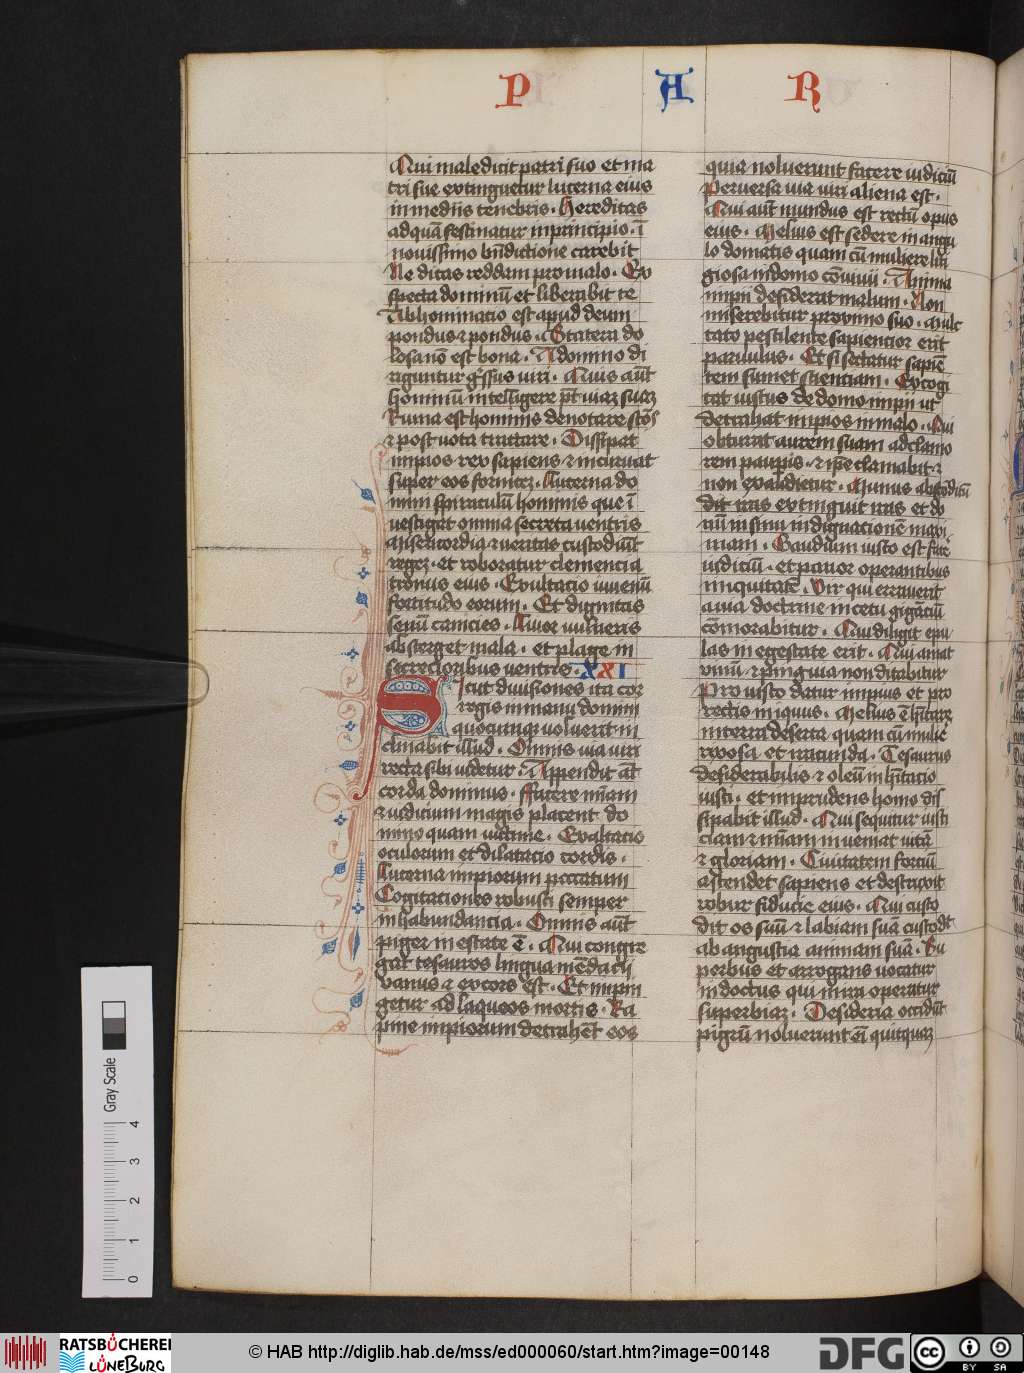 P A R
Qui maledicit patri suo et ma
tri sue extinguetur lucerna eius
in mediis tenebris. Hereditas
ad quā festinatur in principio. ī
nouissimo bn̄dictione carebit
Ne dicas reddam pro malo. Ex
specta dominū et liberabit te
Abhominatio est apud deum
pondus ⁊ pondus. Statera do
losa nō est bona. A domino di
riguntur gͥssus uiri. Quis aūt
hominū intelligere pt̄ uiaꝫ suaꝫ
Ruina est hominis deuotare scōs
⁊ post uota tractare. Dissipat
impios rex sapiens ⁊ incuruat
super eos fornicē. Lucerna do
mini spiraculū hominis que ī
uestigat omnia secreta uentris
Misericordia ⁊ ueritas custodiūt
regeꝫ. et roboratur clemencia
tronus eius. Exultacio iuuenū
fortitudo eorum. Et dignitas
senū canicies. Liuor uulneris
absterget mala. et plage in
secrecioribus uentris. XXI
Sicut diuisiones ita cor
regis in manu domini
quocunqꝫ uoluerit in
clinabit illud. Omnis uia uiri
recta sibi uidetur. Appendit aūt
corda dominus. Facere mīam
⁊ iudicium magis placent do
mino quam uictime. Exaltacio
oculorum et dilatacio cordis.
Lucerna impiorum peccatum
Cogitaciones robusti semper
in habundancia. Omnis aūt
piger in estate ē. Qui congre
gat tesauros lingua mēdacij
uanus ⁊ excors est. Et impin
getur ad laqueos mortis. Ra
pine impiorum detrahēt eos
quia noluerunt facere iudiciū
Peruersa uia uiri aliena est.
Qui aūt mundus est rectū opus
eius. Melius est sedere in angu
lo domatis quam cū muliere liti
giosa in domo cōmuni. Anima
impii desiderat malum. Non
miserebitur proximo suo. Mulc
tato pestilente sapiencior erit
paruulus. Et si sectatur sapiē
tem sumet scienciam. Excogi
tat iustus de domo impii ut
detrahat impios in malo. Qui
obturat aurem suam ad clamo
rem paupis. ⁊ ipse clamabit ⁊
non exaudietur. Munus absconditū
dit iras extinguit iras et do
nū in sinu indignacionē maxi
mam. Gaudium iusto est face
iudiciū. et pauor operantibus
iniquitatē. Vir qui errauerit
a uia doctrine in cetu gigantiū
cōmorabitur. Qui diligit epu
las in egestate erit. Qui amat
uinū ⁊ pinguia non ditabitur
Pro iusto datur impius et pro
rectis iniquus. Melius ē hītare
in terra deserta quam cū mulie
rixosa et iracunda. Tesaurus
desiderabilis ⁊ oleū in hītacio
iusti. et imprudens homo dis
sipabit illud. Qui sequitur iusti
ciam ⁊ mīam inueniat uitā
⁊ gloriam. Ciuitatem fortiū
ascendet sapiens et destruxit
robur fiducie eius. Qui custo
dit os suū ⁊ labiam suā custodit
ab angustia animam suā. Su
perbus et arrogans uocatur
indoctus qui in ira operatur
superbiaꝫ. Desideria occidūt
pigrū noluerunt eī quitquaꝫ
Gray Scale
0 1 2 3 4
RATSBÜCHEREI
LÜNEBURG
© HAB http://diglib.hab.de/mss/ed000060/start.htm?image=00148
DFG
cc BY SA